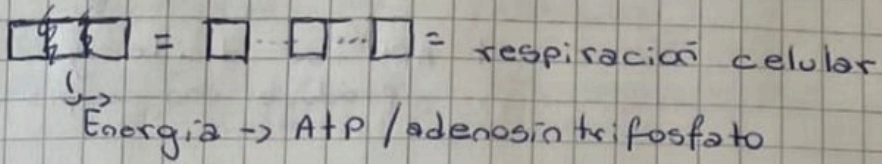 = ... = respiración celular
Energía -> AtP / adenosin trifosfato